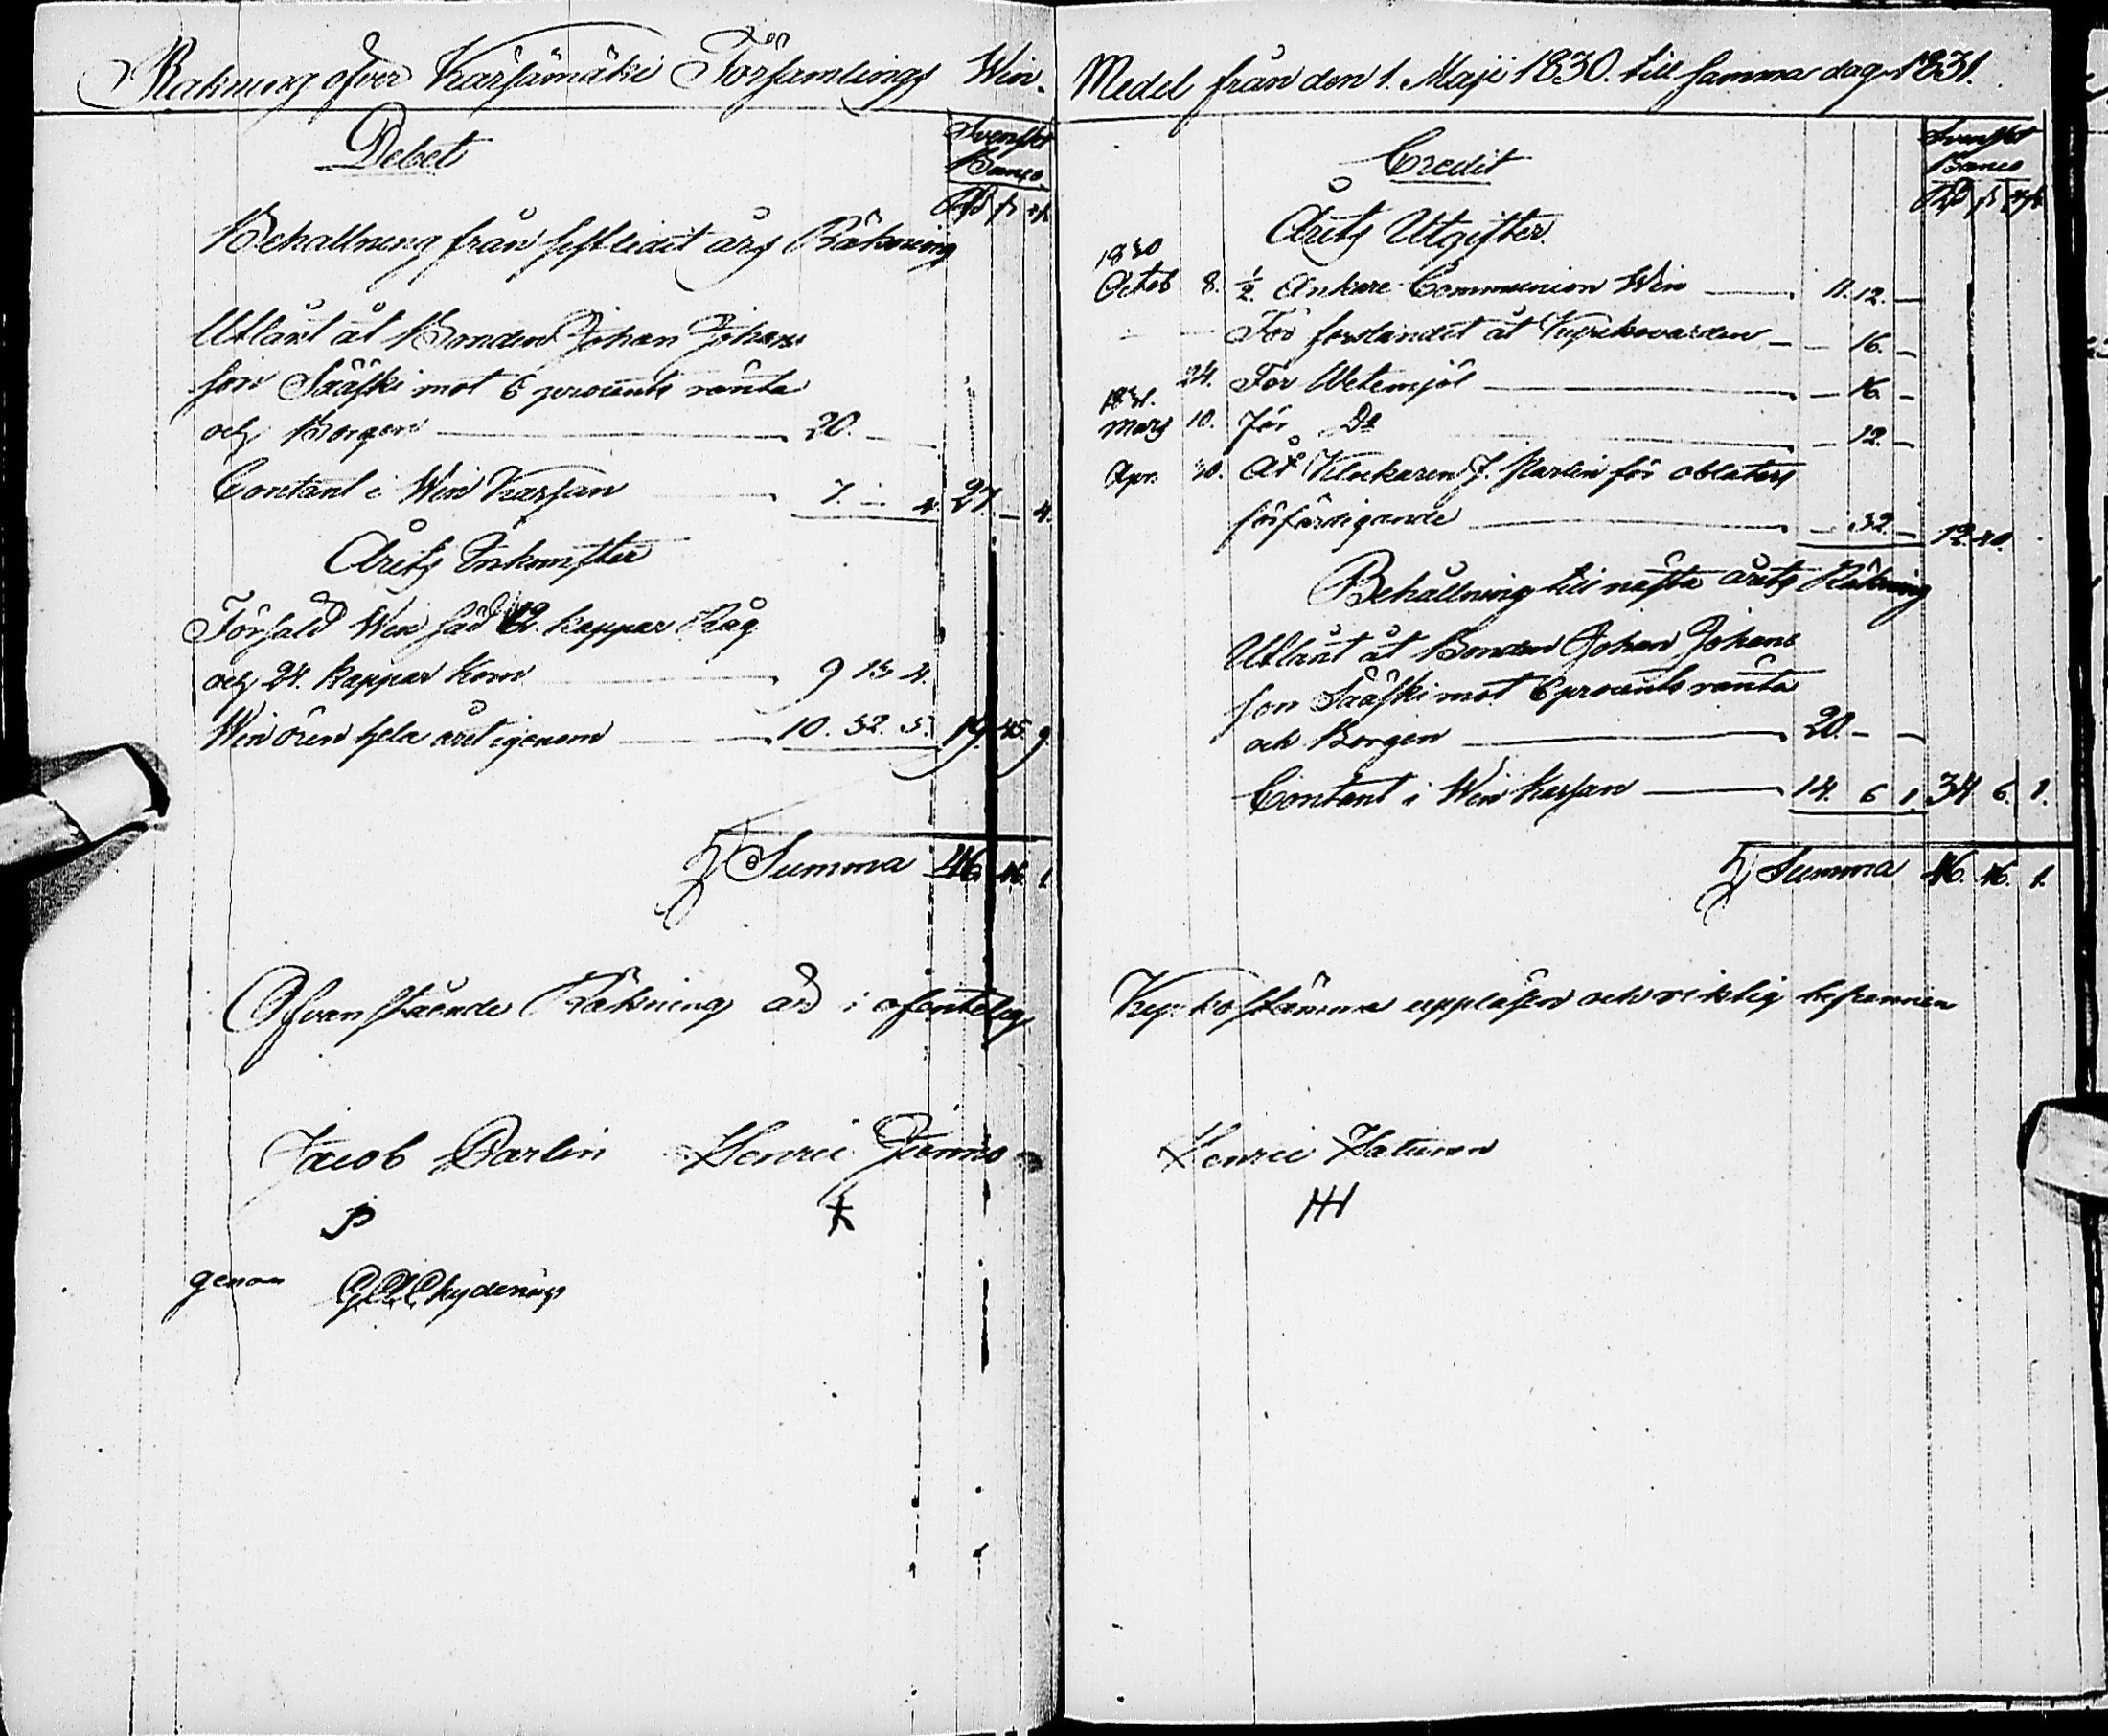 Räkning öfver Kärsämäki Församlings Win-
Debet
Svenskt
Banco
Rd ß rst
Behållning från sistledit års Räkning
Utlånt åt Bonden Johan Johans
son Sääski mot 6 procents ränta
och Borgen 20. — —
Contant i Win Kassan 7. — 4. 27. — 4.
Årets Inkomster
Försåld Win säd 12. kappar Råg
och 24. kappar Korn 9 13 4.
Win ören hela året igenom 10. 32. 5. 19. 45. 9.
Summa 46. 46. 1.
Ofvanstående Räkning är i ofentelig
Jacob Parlin Henric
genom Chydenius
Medel från den 1. Maji 1830. till samma dag 1831.
Credit
Svenskt
Banco
Rd ß rst
Årets Utgifter.
1830
Octob 8. ½ Ankare Communion Win 11. 12. —
För forslandet åt Kyrkovärden — 16. —
24. För Hvetemjöl — 16 —
1831.
Mars 10. För Do — 12. —
Apr. 30. Åt Klockaren J. för oblaters
förfärdigande — 32. — 12. 40.
Behållning till nästa årets Räkning
Utlånt åt Bonden Johan Johans
son Sääski mot 6 procents ränta
och Borgen 20. — —
Contant i Win Kassan 14. 6 1. 34 6. 1.
Summa 46. 46. 1.
Kyrkostämma uppläsen och riktig befunnen
Henric
HH